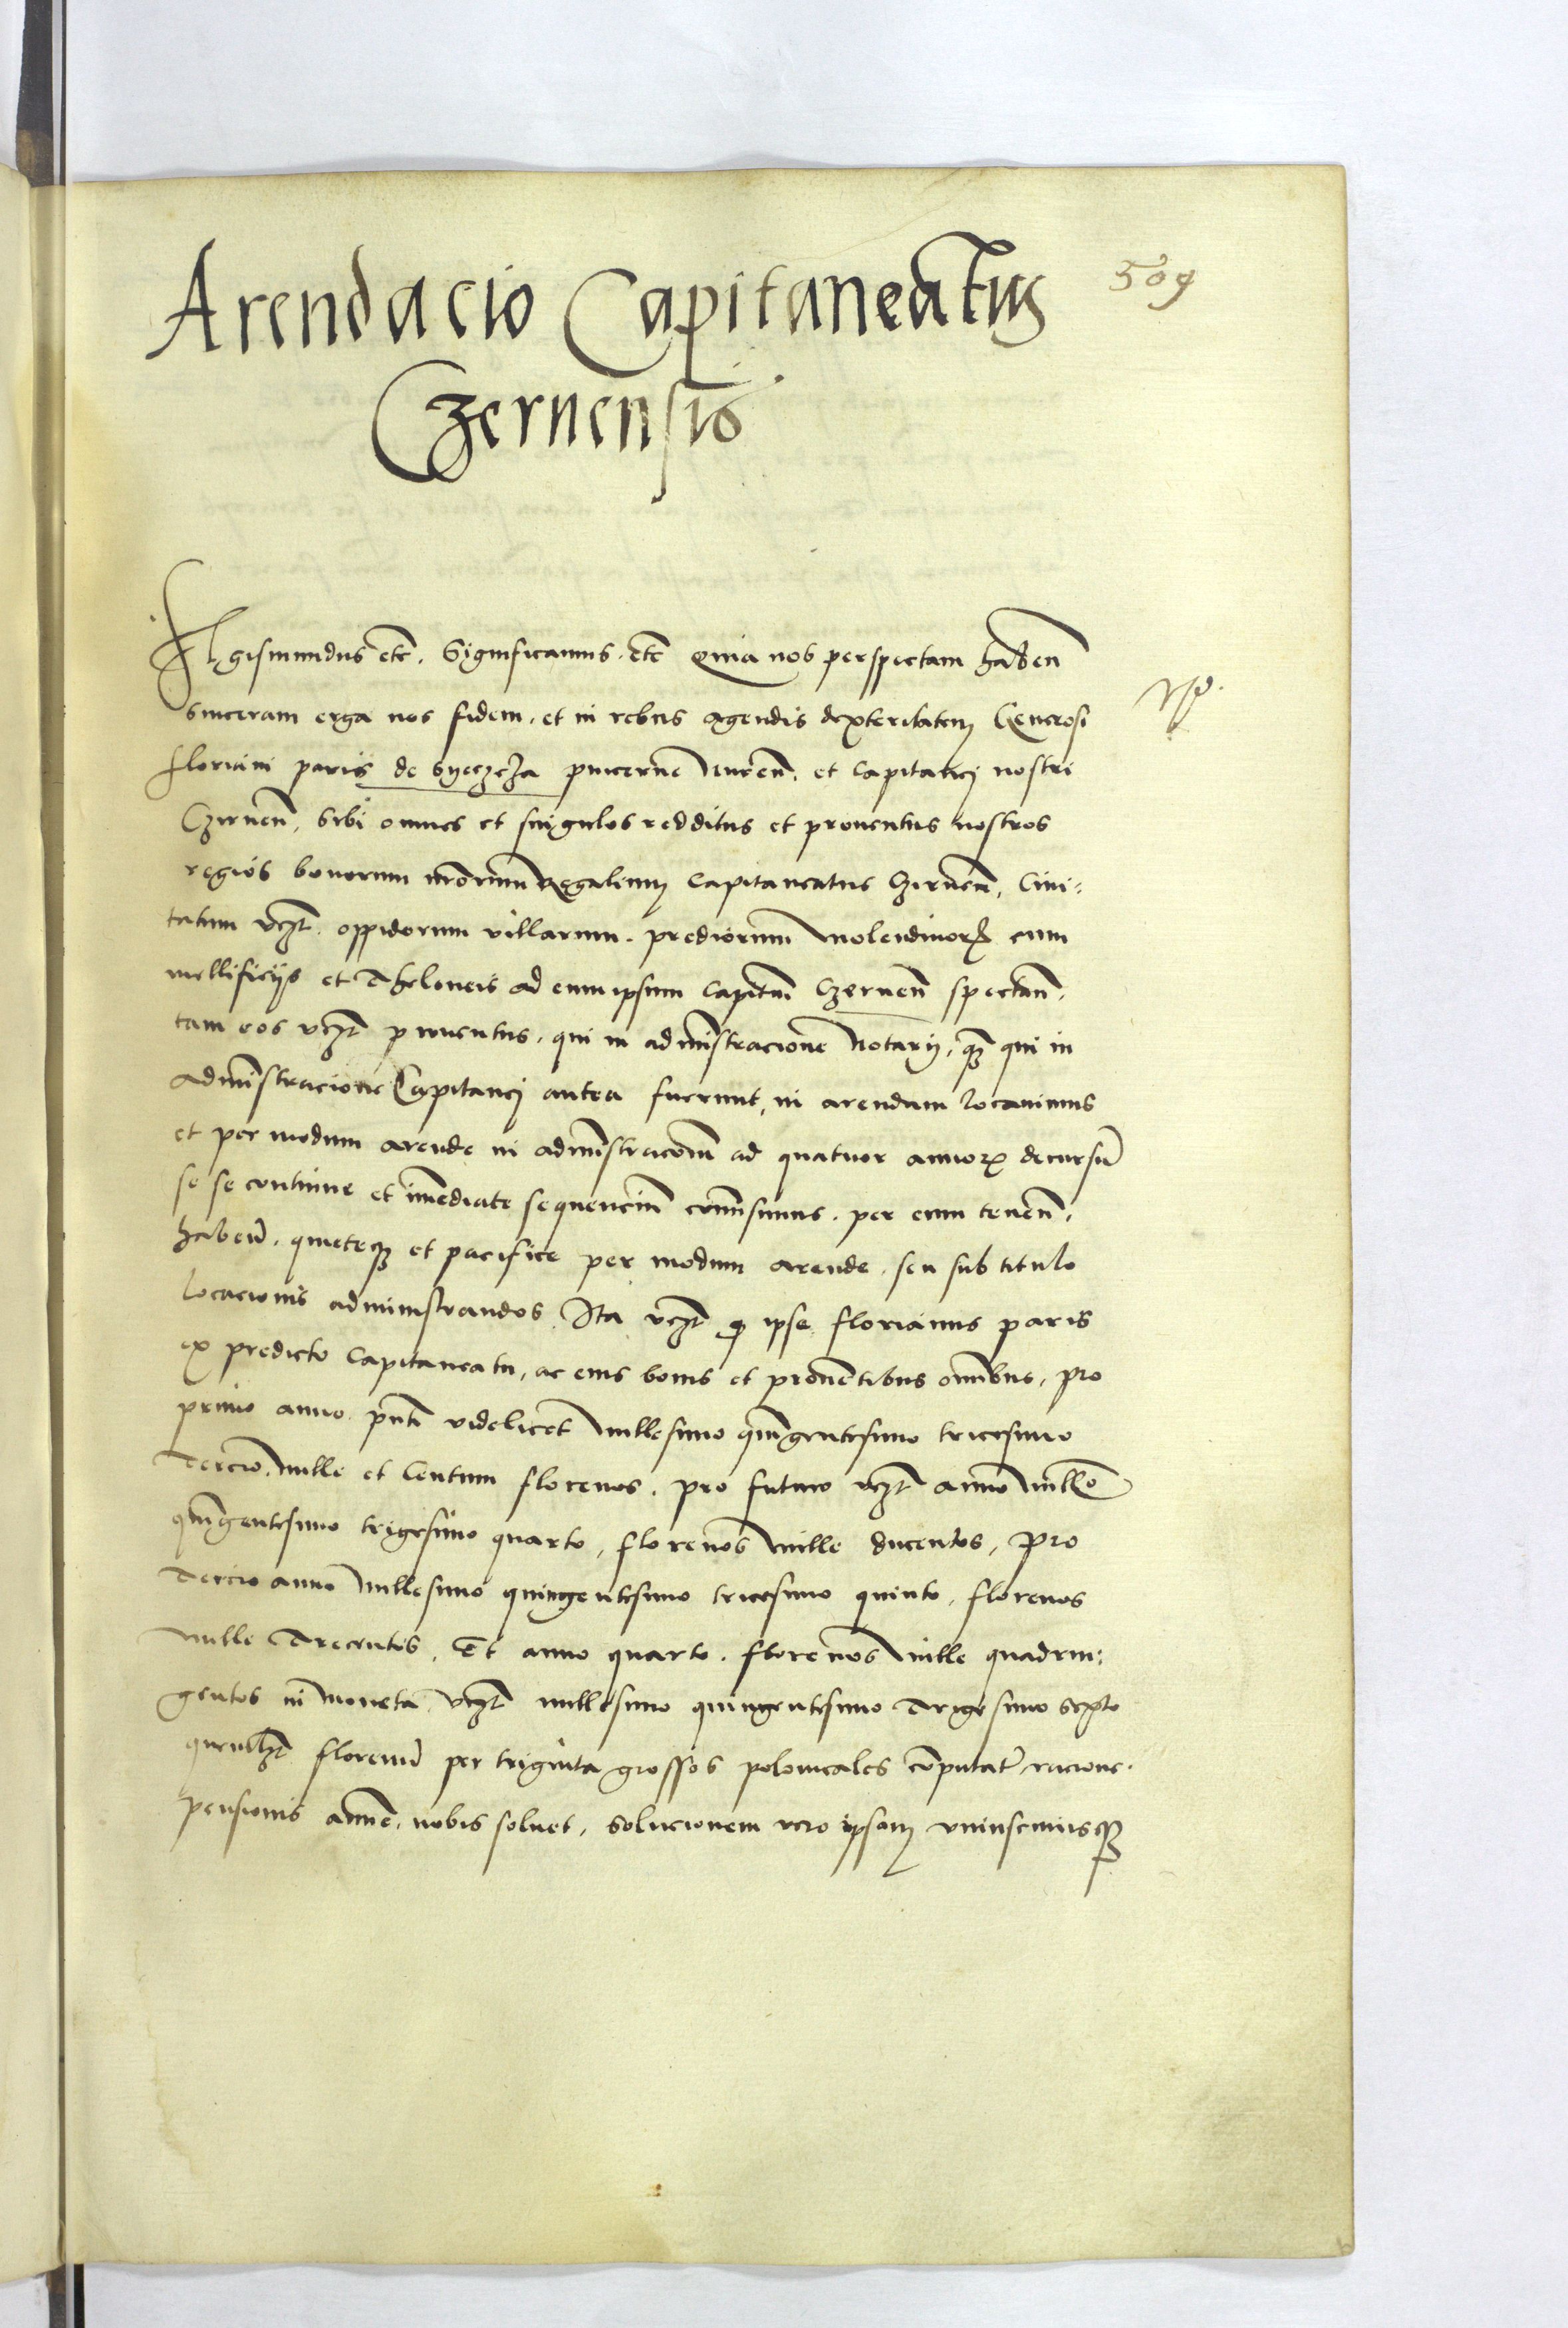 Arendacio Capitaneatus
509
Czernensis
Sigismundus etc. Significamus. etc Quia nos perspectam haben
sinceram erga nos fidem, et in rebus agendis dexteritatem Generosi
Floriani paris de Syeczcza pincerne et Capitanei nostri
Czernen, Sibi omnes et singulos redditus et proventus nostros
regios bonorum nrorum Regalium Capitaneatus Czernen, Civi=
tatum vczt. oppidorum villarum. prediorum Molendinorum cum
mellificiis et Theloneis ad eum ipsum Capitm Czernen spectan.
tam eos vczt proventus, qui in administracione Notarij, qz qui in
administracione Capitanei antea fuerunt, in arendam locavimus
et per modum arende in administracom ad quatuor annorum decursu
se se continue et imediate sequencium comisimus. per eum tenen.
haben. quieteqz et pacifice per modum arende seu sub titulo
locacionis administrandos. Ita vczt q ipse Florianus paris
ex predicto Capitaneatu, ac eius bonis et proventibus omnibus, pro
primo anno pnti videlicet Millesimo quingentesimo tricesimo
Tercio, Mille et Centum florenos, pro futuro vczt anno Millo
quingentesimo trigesimo quarto, florenos Mille ducentos, pro
Tercio anno Millesimo quingentesimo tricesimo quinto, florenos
Mille Trecentos, Et anno quarto. florenos Mille quadrin:
gentos in Moneta vczt millesimo quingentesimo Trigesimo sexto
quemlbzt florenum per triginta grossos polonicales computat, racione.
pensionis annue, nobis solvet, Solucionem vero ipsam uniuscuiusqz